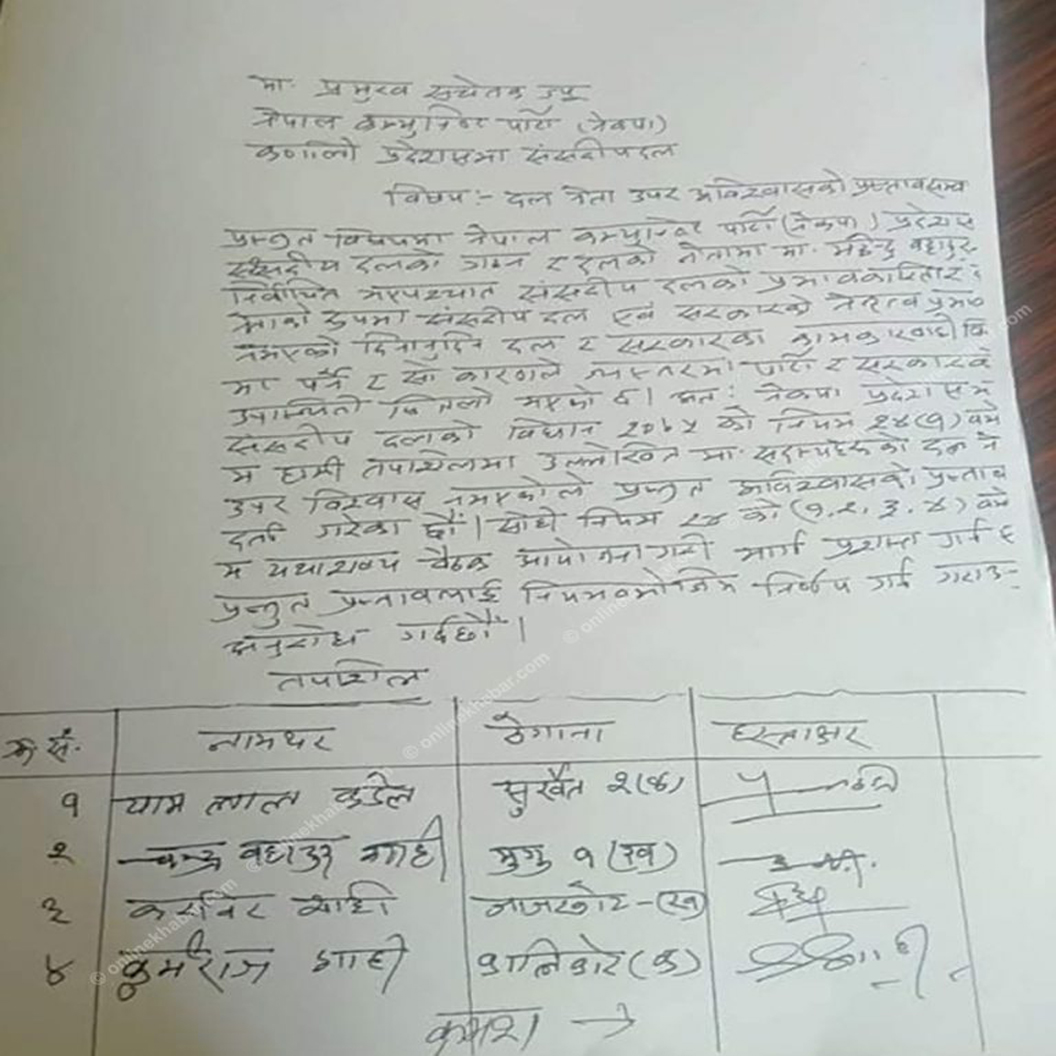 मा. प्रमुख सचेतक ज्यू
नेपाल कम्युनिष्ट पार्टी (नेकपा)
कर्णाली प्रदेशसभा संसदीय दल
विषय :- दल नेता उपर अविश्वासको प्रस्ताव सम्बन्ध
प्रस्तुत विषयमा नेपाल कम्युनिष्ट पार्टी (नेकपा) प्रदेशस
संसदीय दलको गठन र दलको नेतामा मा. महेन्द्र बहादुर
निर्वाचित भएपश्चात संसदीय दलको प्रभावकारिता र
नेताको रुपमा संसदीय दल एवं सरकारको नेतृत्व प्रभाव
नभएको दिनानुदिन दल र सरकारका कामकारवाही वि
मा पर्ने र सो कारणले पार्टी र सरकारको
उपस्थिती भएको छ। अत: नेकपा प्रदेशसभ
संसदीय दलको विधान २०७५ को नियम २४(१) बमो
म हामी तपशिलमा उल्लेखित मा. सदस्यहरुको दल ने
उपर विश्वास नभएकोले प्रस्तुत अविश्वासको प्रस्ताव
दर्ता गरेका छौं। सोही नियम २४ को (१.२.३.४) बमो
म यथाशक्य बैठक आयोजना गरी मार्ग प्रशस्त गर्न र
प्रस्तुत प्रस्तावलाई नियमबमोजिम निर्णय गर्न गराउन
अनुरोध गर्दछौं।
तपशिल
क्र.सं. नामथर ठेगाना हस्ताक्षर
१ याम लाल कंडेल सुर्खेत २(क)
२ चन्द्र बहादुर शाही मुगु १(ख)
३ करविर शाही जाजरकोट-(ख)
४ कुर्मराज शाही कालिकोट(क)
क्रमश →
© onlinekhabar.com
© onlinekhabar.com
© onlinekhabar.com
© onlinekhabar.com